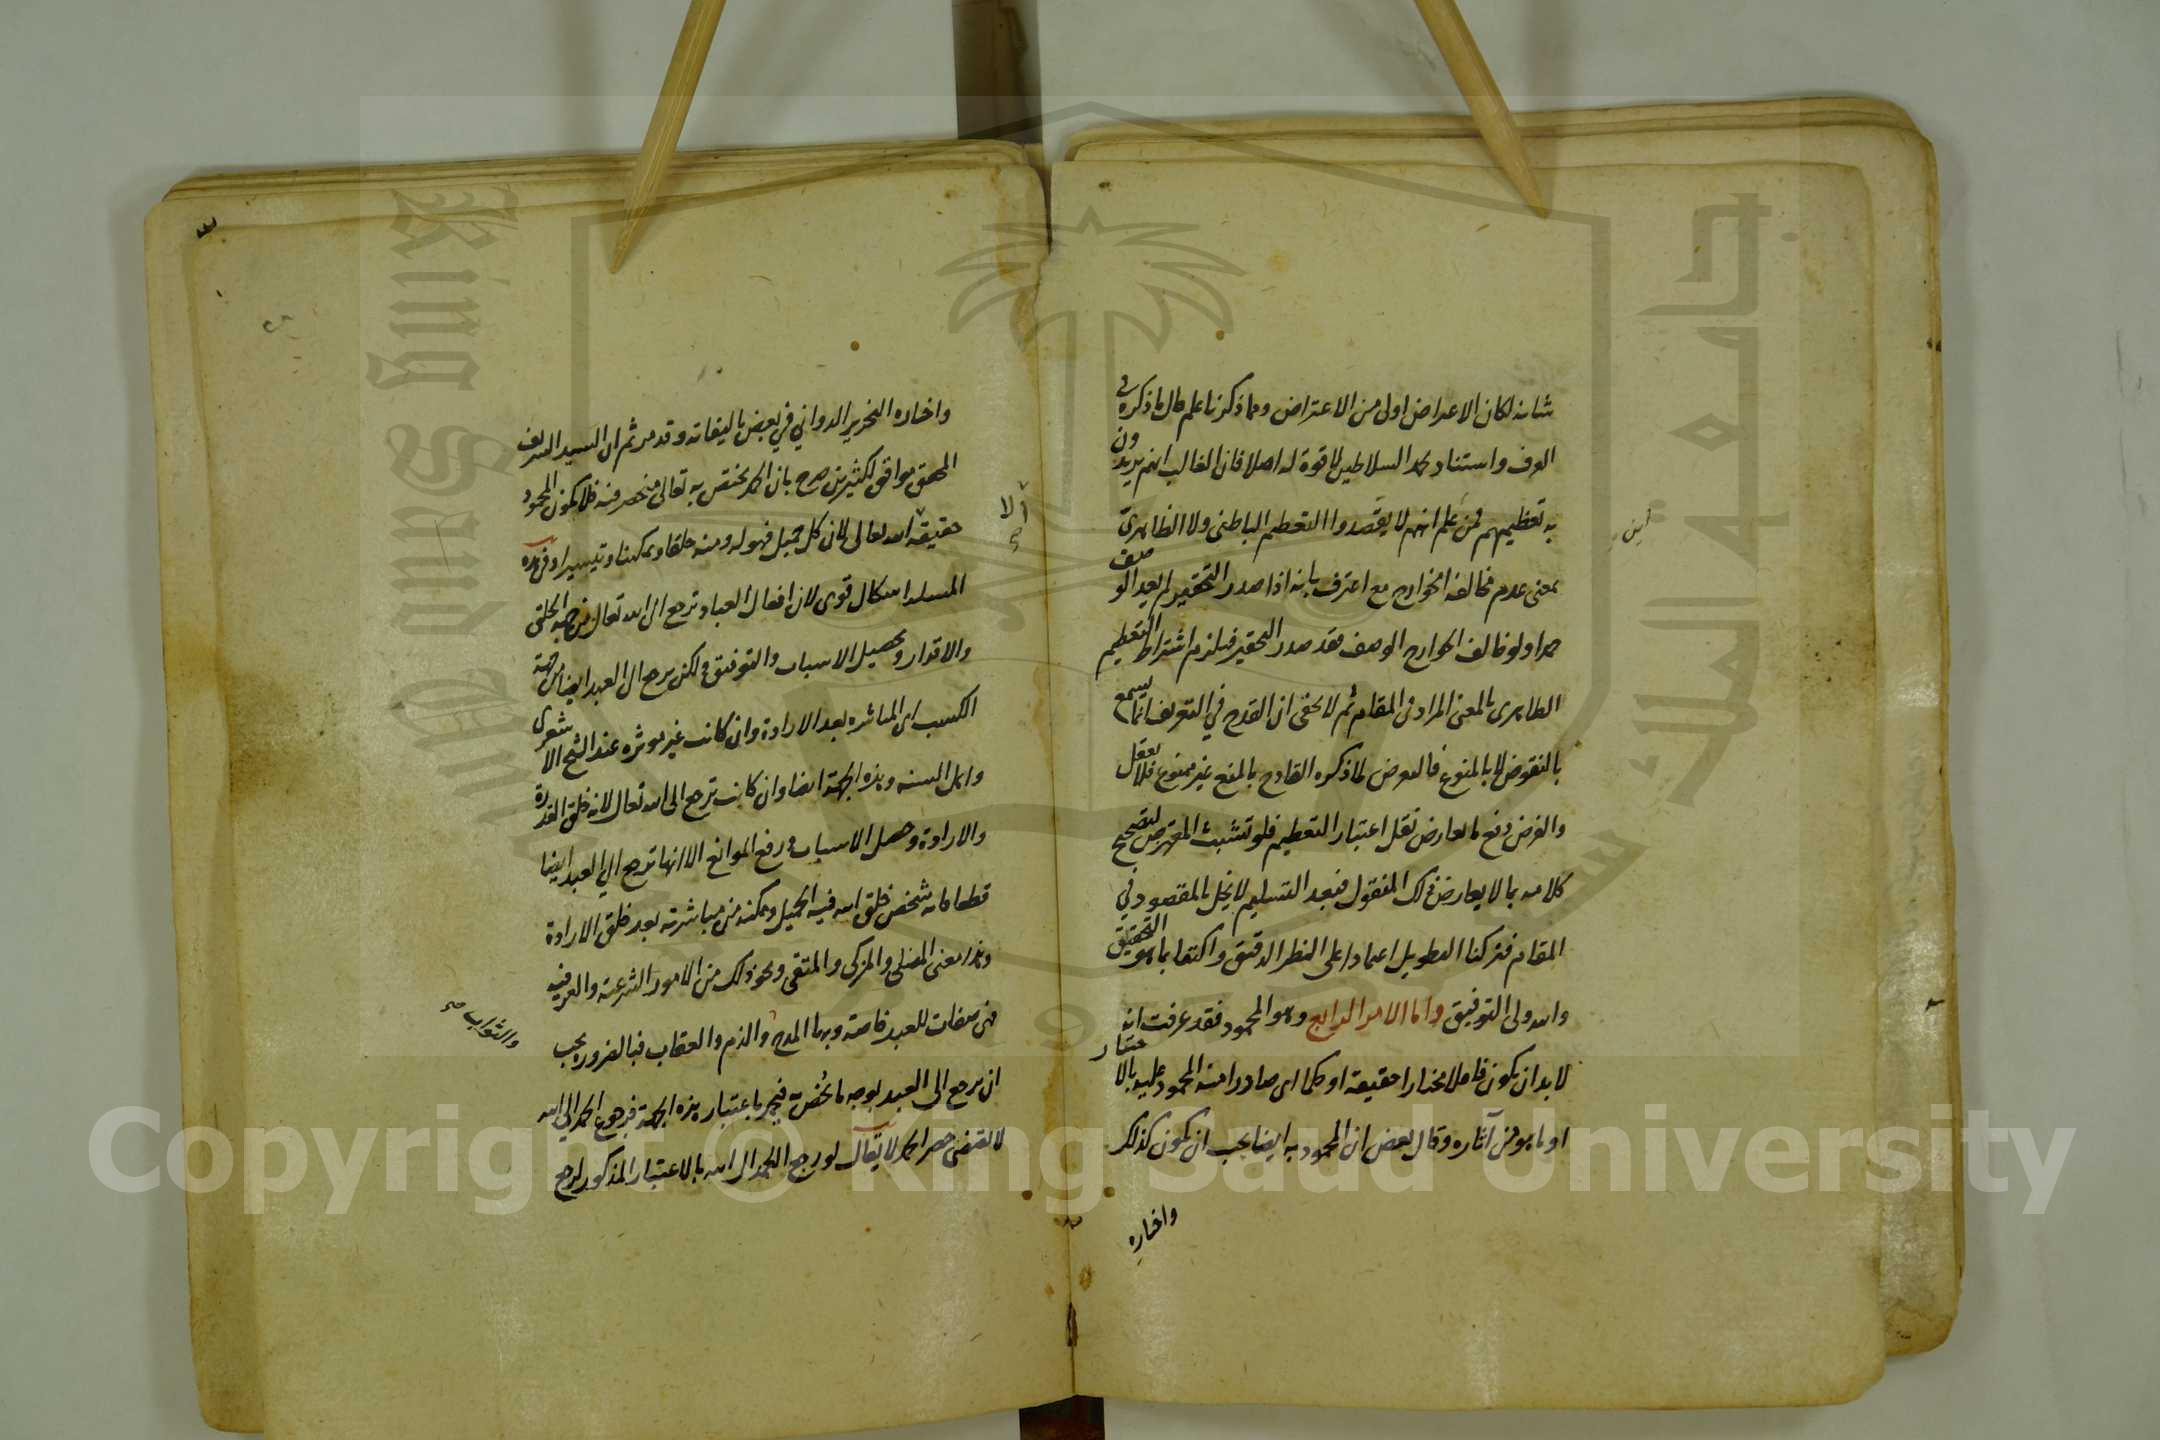 شانه لكان الاعراض اولى من الاعتراض ومما ذكرنا علم حال ما ذكره في
العرف واستناد حمد السلاطين لا قوة له اصلا فان الغالب انهم يريدون
به تعظيمهم فمن علم انهم لا يقصدوا التعظيم الباطني ولا الظاهري
بمعنى عدم مخالفة الجوارح مع اعترف بانه اذا صدر التحقير لم يعد الوصف
حمدا ولو خالف الجوارح الوصف فقد صدر التحقير فيلزم اشتراط التعظيم
الظاهري بالمعنى المراد في المقام ثم لا يخفى ان القدح في التعريف انما يسمع
بالنقوض لا بالمنوع فالتعرض لما ذكره القادح بالمنع غير مسموع فلا يعقل
والغرض دفع ما يعارض نقل اعتبار التعظيم فلو تشبث المعترض لتصحيح
كلامه بما لا يعارض ذلك المنقول فبعد التسليم لا يخل بالمقصود في
المقام فتركنا التطويل اعتمادا على النظر الدقيق واكتفا بما هو التحقيق
والله ولى التوفيق واما الامر الرابع وهو المحمود فقد عرفت انه
لابد ان يكون فاعلا مختارا حقيقة او حكما اى صادرا منه المحمود عليه بالاختيار
او ما هو من آثاره وقال بعض ان المحمود به ايضا يجب ان يكون كذلك
واختاره
واختاره النحرير الدواني في بعض تاليفاته وقد مر ثم ان السيد الشريف
المحقق موافق لكثيرين صرح بان الحمد يختص به تعالى منحصر فيه فلا يكون المحمود
حقيقة الله تعالى لان كل جميل فهو له ومنه خلقا وتمكينا وتيسيرا وفي هذه
الا
صح
المسلة اشكال قوى لان افعال العباد ترجع الى الله تعالى من جهة الخلق
والاقدار وتحصيل الاسباب والتوفيق لكن يرجع الى العبد ايضا من جهة
الكسب اى المباشرة بعد الارادة وان كانت غير موثرة عند الشيخ الاشعرى
واهل السنه وهذه الجهة ايضا وان كانت ترجع الى الله تعالى لانه خلق القدرة
والارادة وحصل الاسباب ورفع الموانع الا انها ترجع الي العبد ايضا
قطعا فانه شخص خلق الله فيه الجميل ومكنه من مباشرته بعد خلق الارادة
وهذا معنى المصلى والمزكى والمتقى ونحو ذلك من الامور الشرعية والعرفية
فهى صفات للعبد خاصة وبها المدح والذم والعقاب فبالضرورة يجب
والثواب صح
ان يرجع الى العبد بوجه ما يخصه فيحمد باعتبار هذه الجهة فرجوع الحمد الي الله
لا يقتضى حصر الحمد لا يقال لو رجع الحمد الى الله بالاعتبار المذكور لرجع
Copyright © King Saud University
King Saud University
جامعة الملك سعود